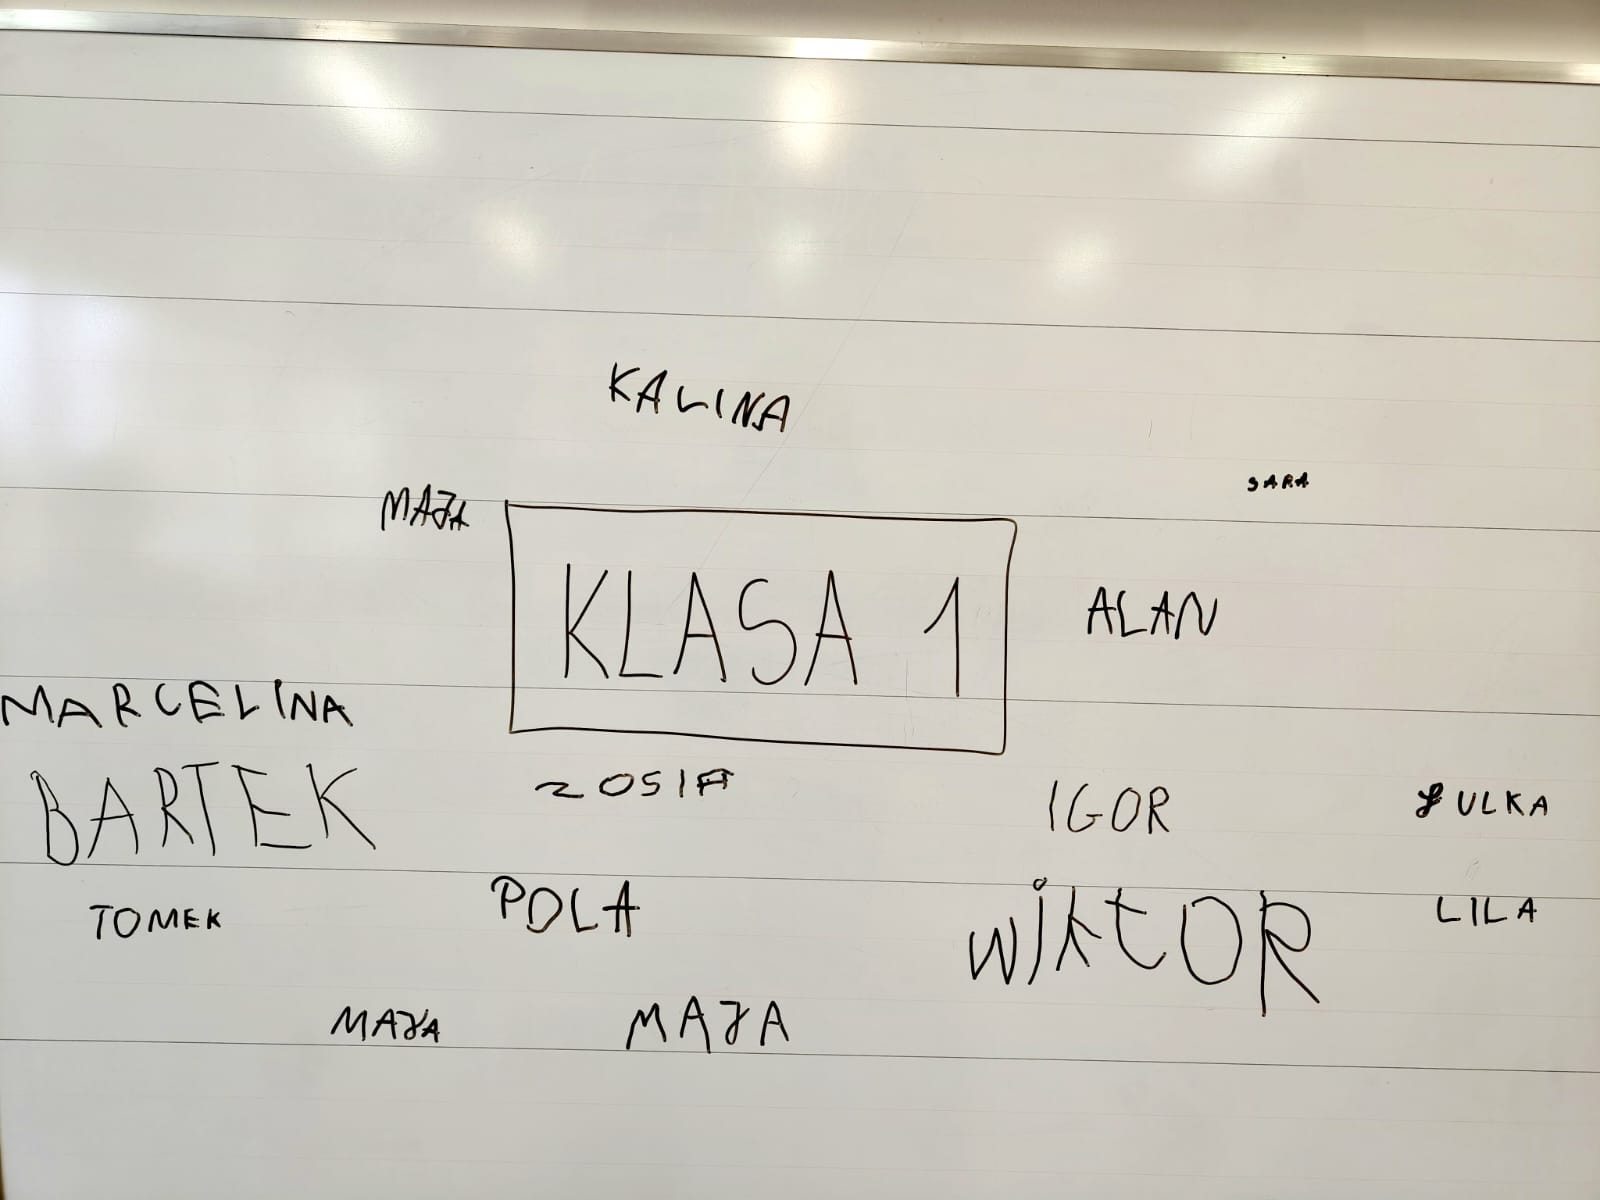 KALINA
SARA
MAJA
KLASA 1
ALAN
MARCELINA
BARTEK
ZOSIA
IGOR
JULKA
TOMEK
POLA
WiktOR
LILA
MAJA
MAJA